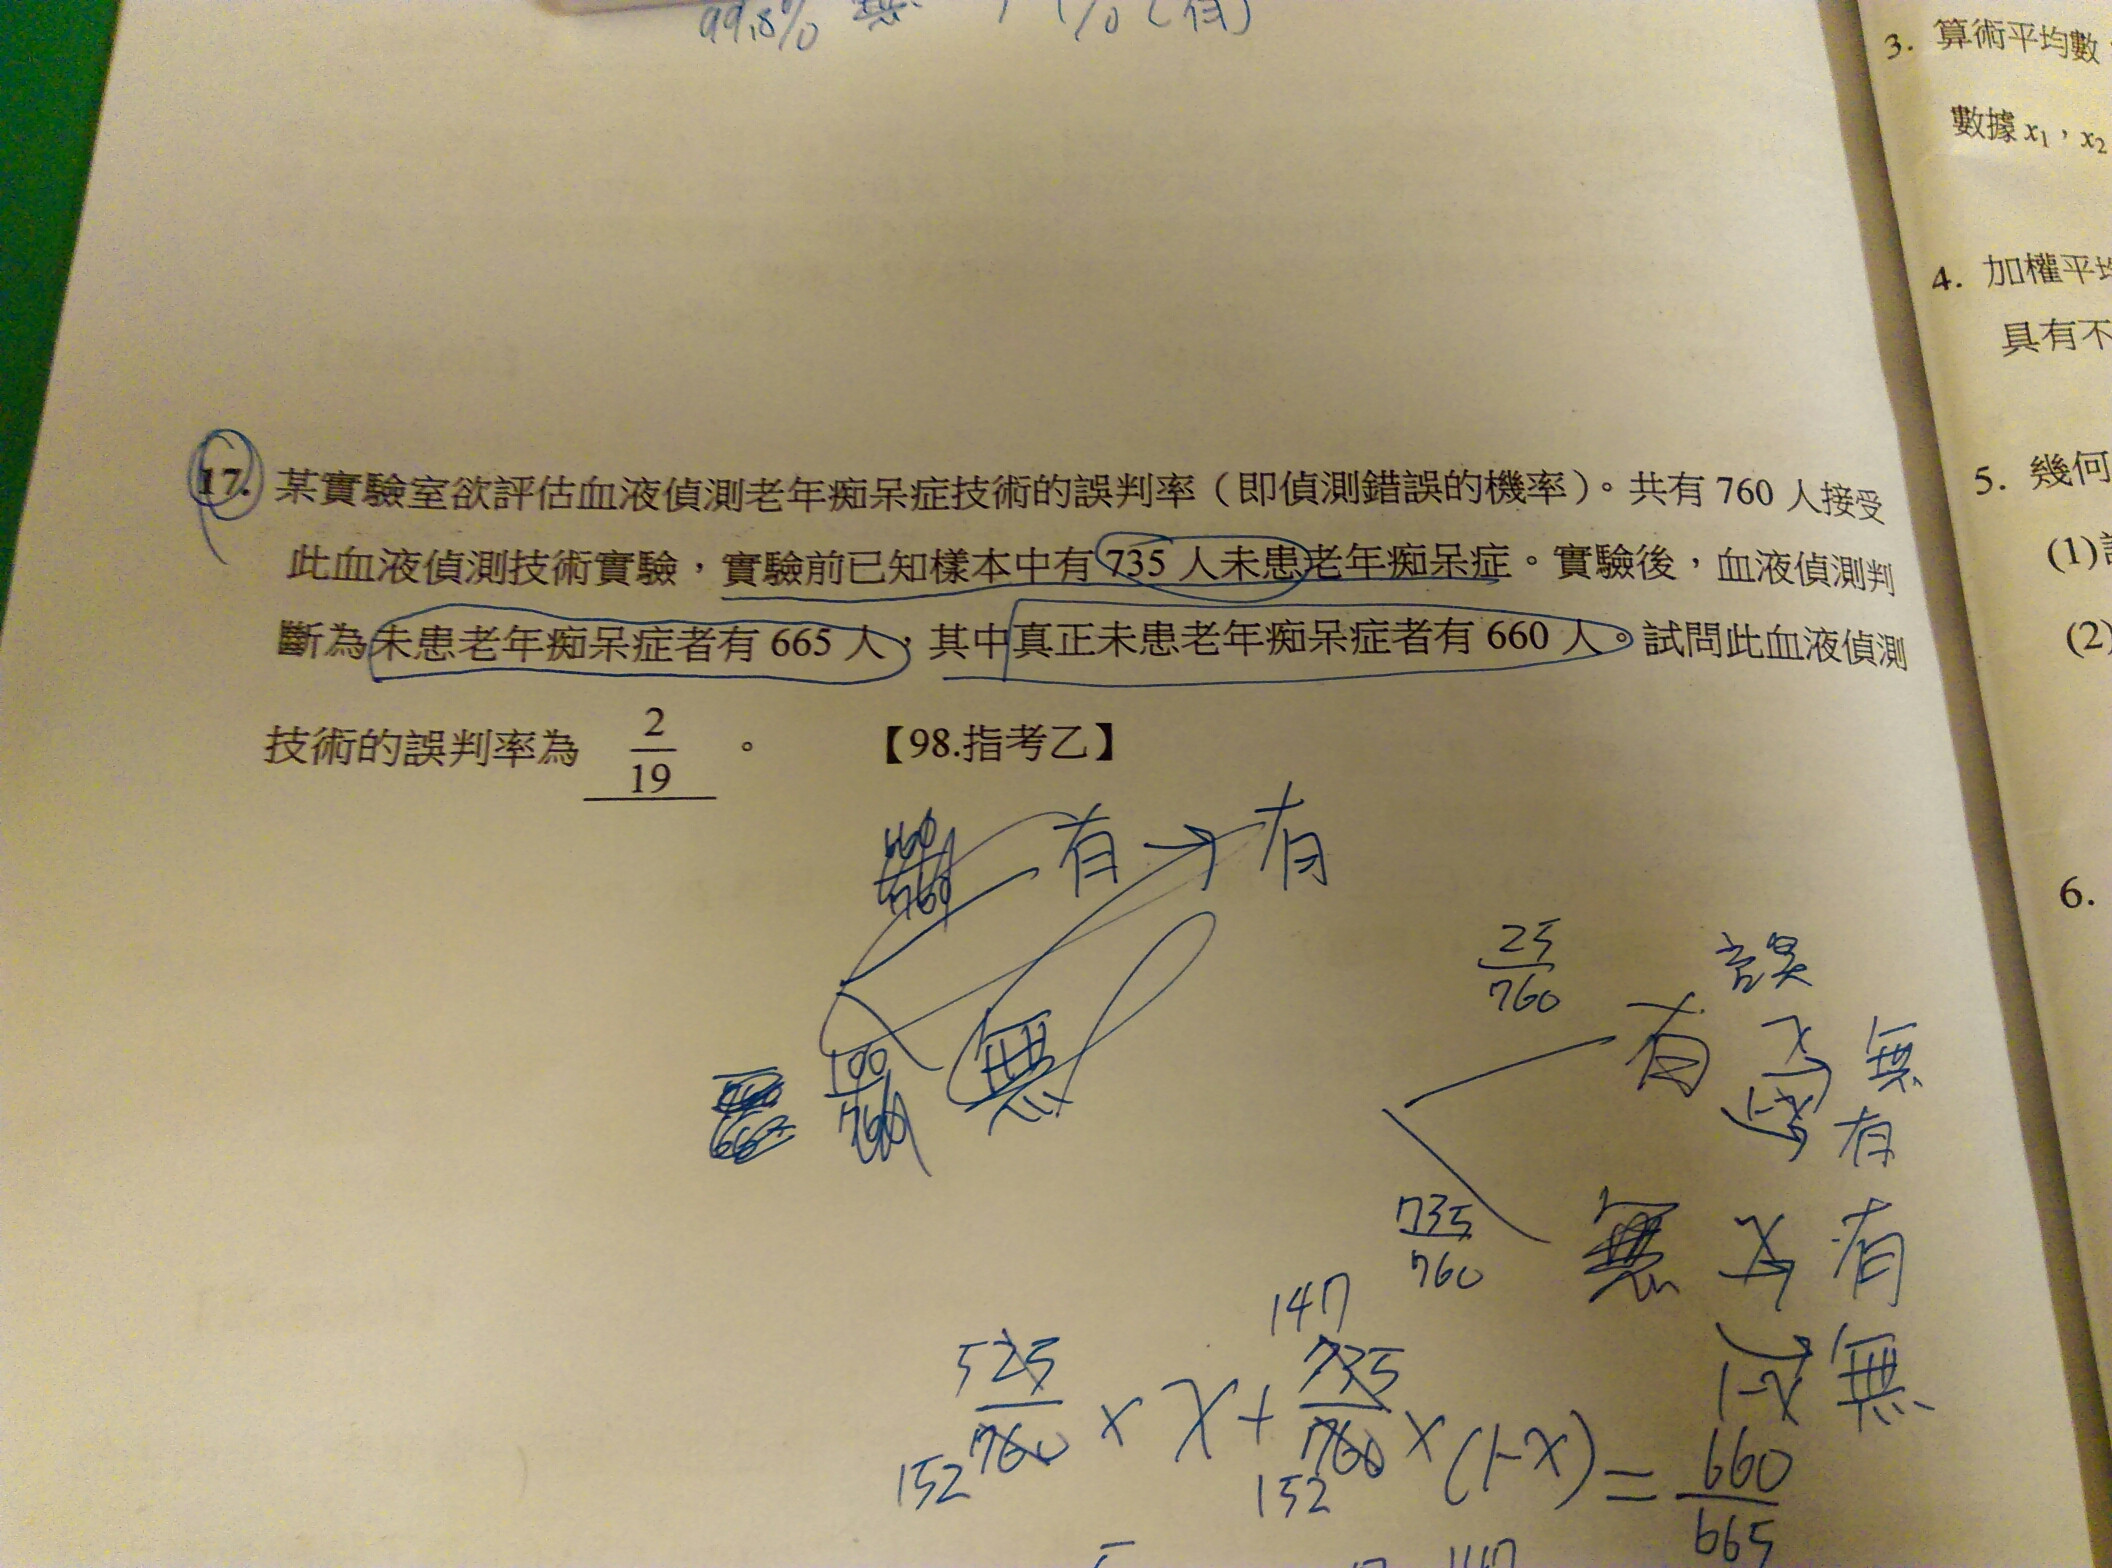 99.8% 無
1% (有)
17. 某實驗室欲評估血液偵測老年痴呆症技術的誤判率（即偵測錯誤的機率）。共有 760 人接受
此血液偵測技術實驗，實驗前已知樣本中有 735 人未患老年痴呆症。實驗後，血液偵測判
斷為未患老年痴呆症者有 665 人，其中真正未患老年痴呆症者有 660 人。試問此血液偵測
技術的誤判率為 2/19 。 【98.指考乙】
有 → 有
100/760 無
25/760 有 誤
x 無
1-x 有
735/760 無 x 有
1-x 無
5 25/760 152 × x + 147 735/760 152 × (1-x) = 660/665
147
3. 算術平均數
數據 x₁，x₂
4. 加權平均
具有不
5. 幾何
(1)
(2)
6.